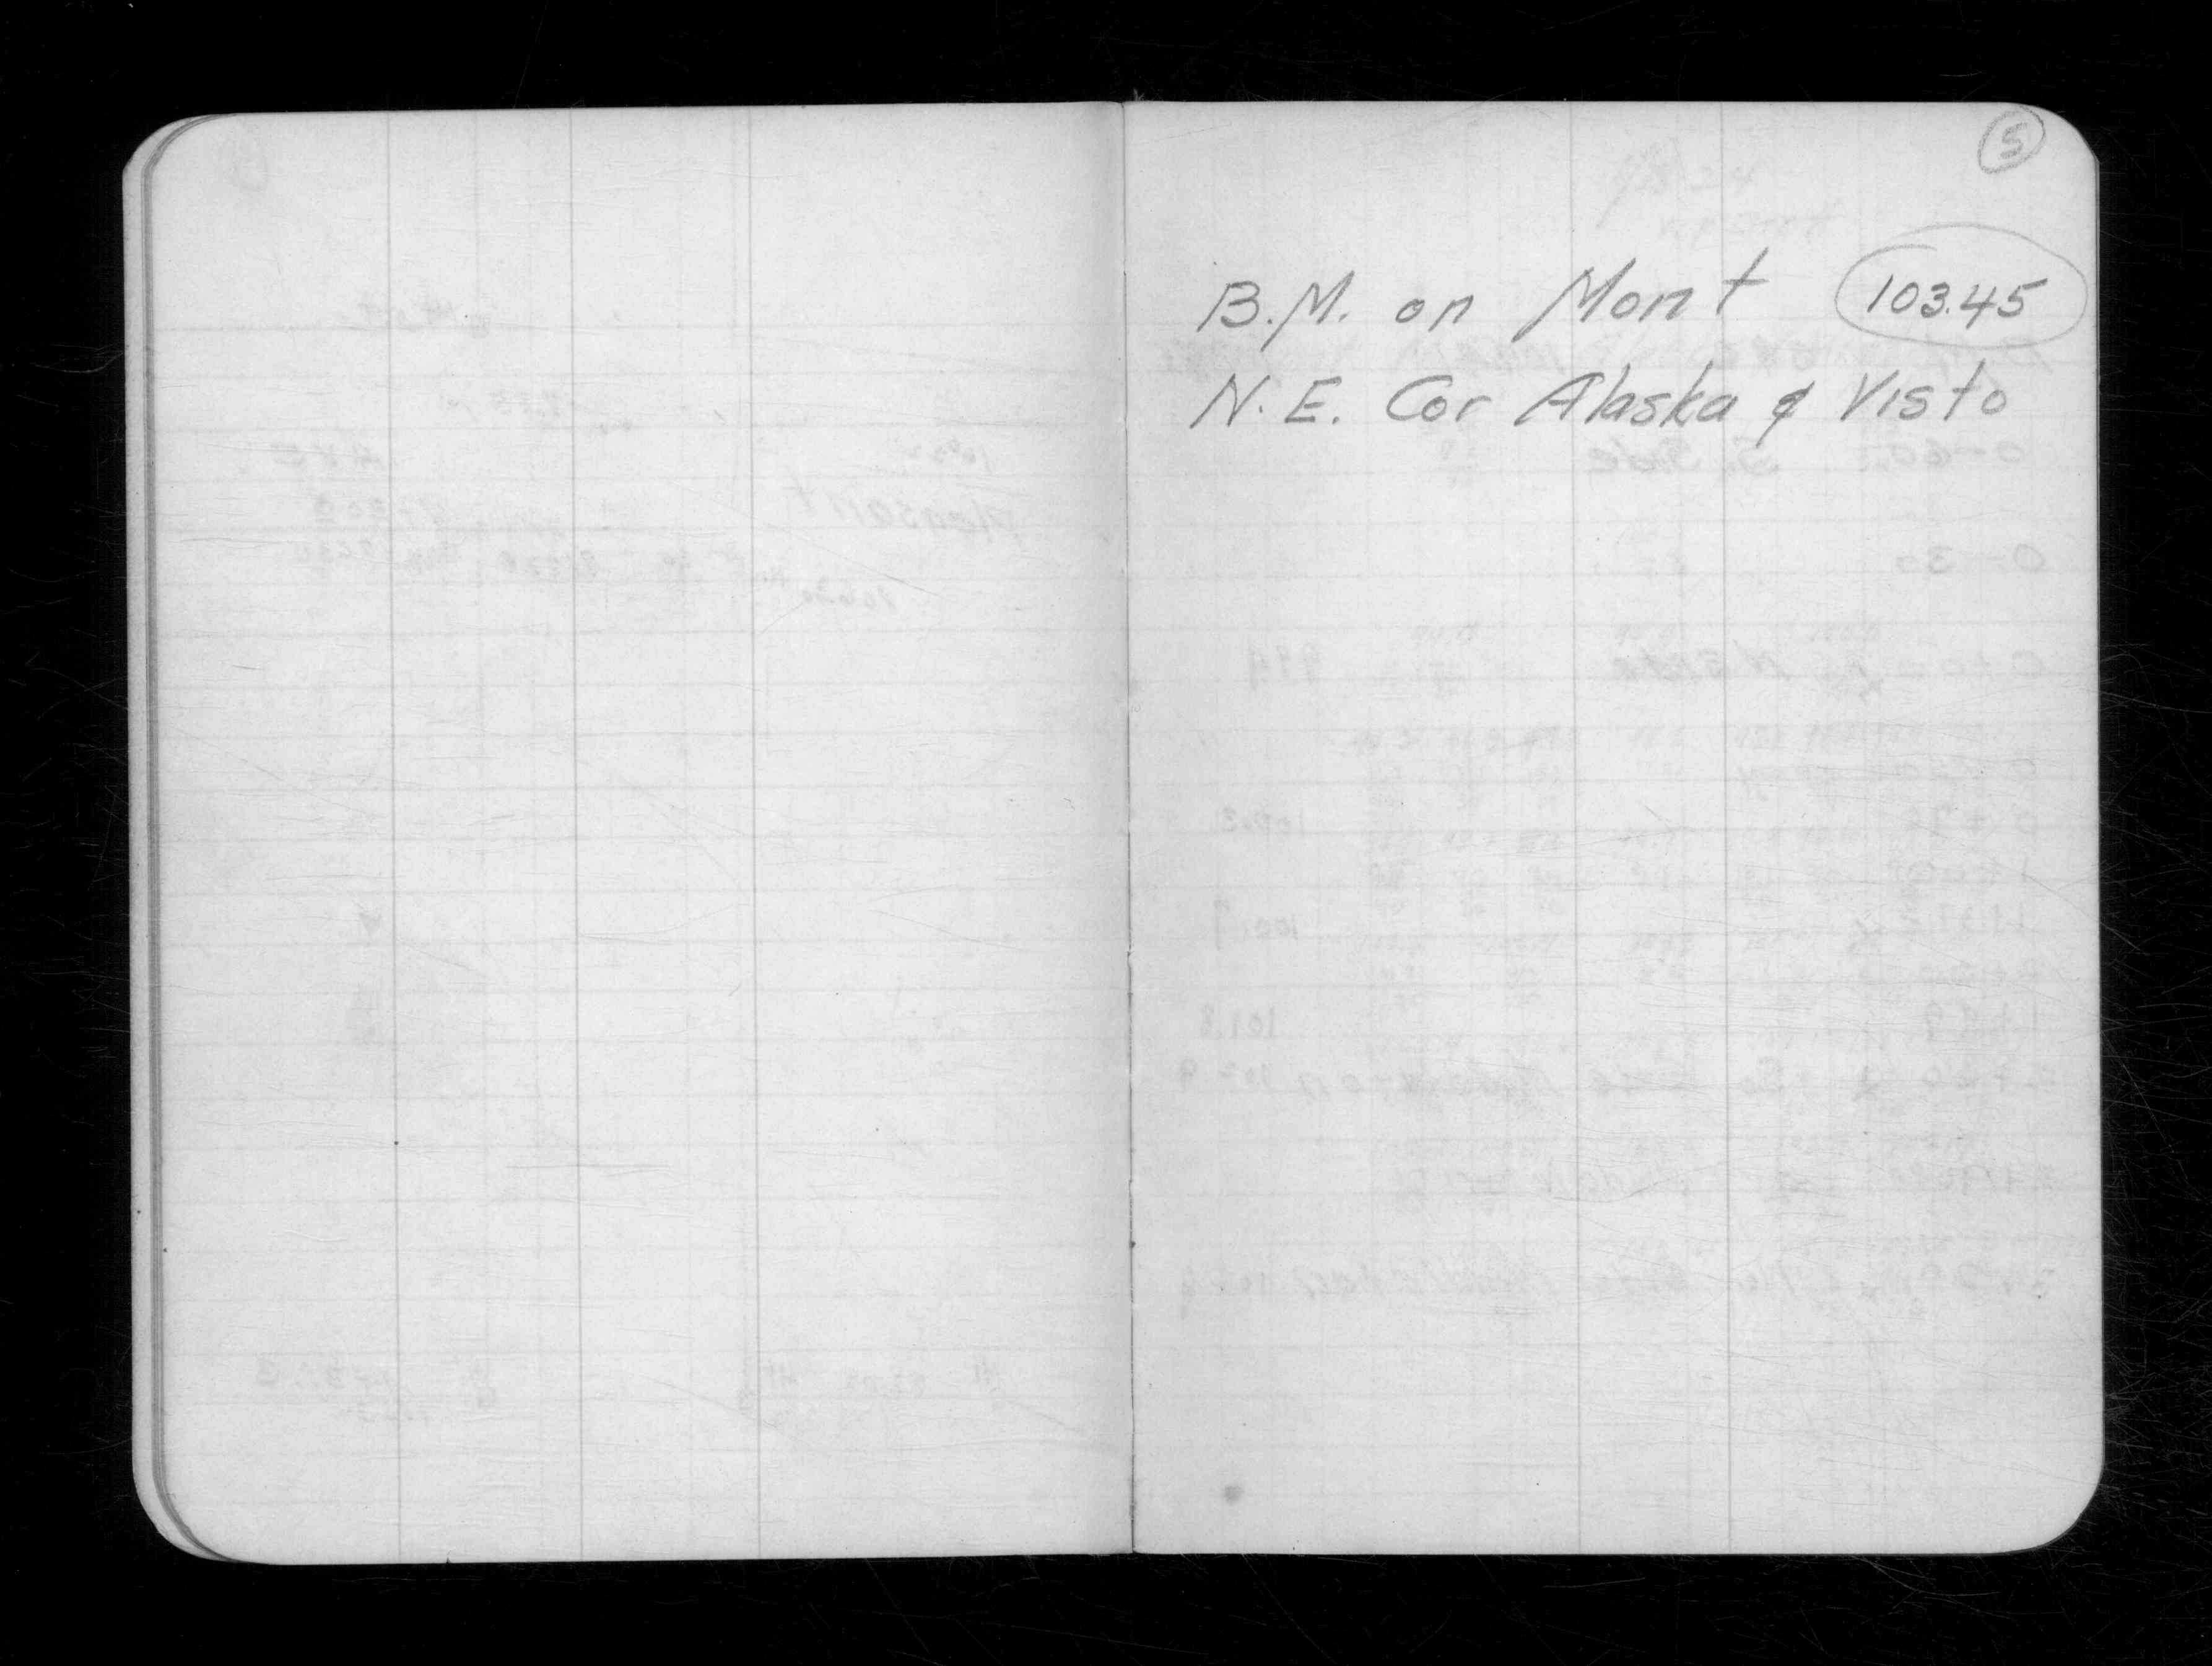 5
B.M. on Mont 103.45
N.E. Cor Alaska & Visto